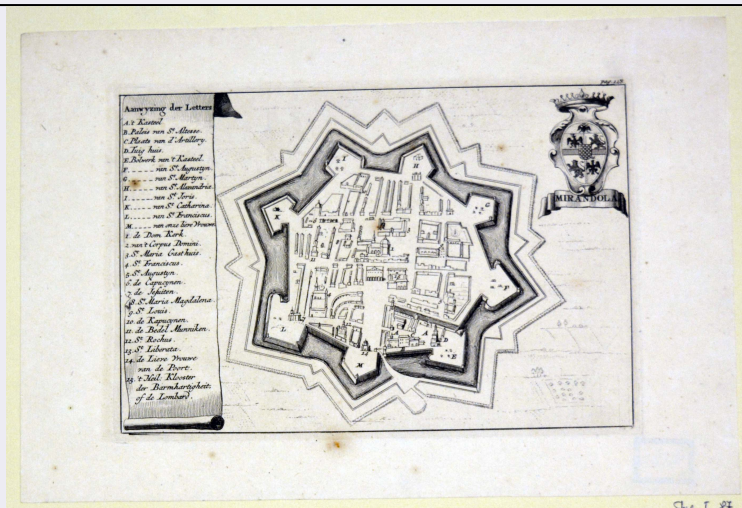 Aanwyzing der Letters
A. 't Kasteel
B. Paleis van Sn. Altesse.
C. Plaets van d'Artillery.
D. Tuig huis.
E. Bolwerk van 't Kasteel.
F. van St. Augustyn.
G. van St. Martyn.
H. van St. Alexandria.
I. van St. Joris.
K. van St. Catharina.
L. van St. Franciscus.
M. van onze lieve Vrouwe.
1. de Dom Kerk.
2. van 't Corpus Domini.
3. St. Maria Gasthuis.
4. St. Franciscus.
5. St. Augustyn.
6. de Capucynen.
7. de Jesuiten.
8. St. Maria Magdalena.
9. St. Louis.
10. de Kapucynen.
11. de Bedel Munniken.
12. St. Rochus.
13. St. Liberata.
14. de Lieve Vrouwe
van de Poort.
15. 't Heil: Klooster
der Barmhartigheit;
of de Lombard.
MIRANDOLA
I
H
G
K
F
L
A
D
E
M